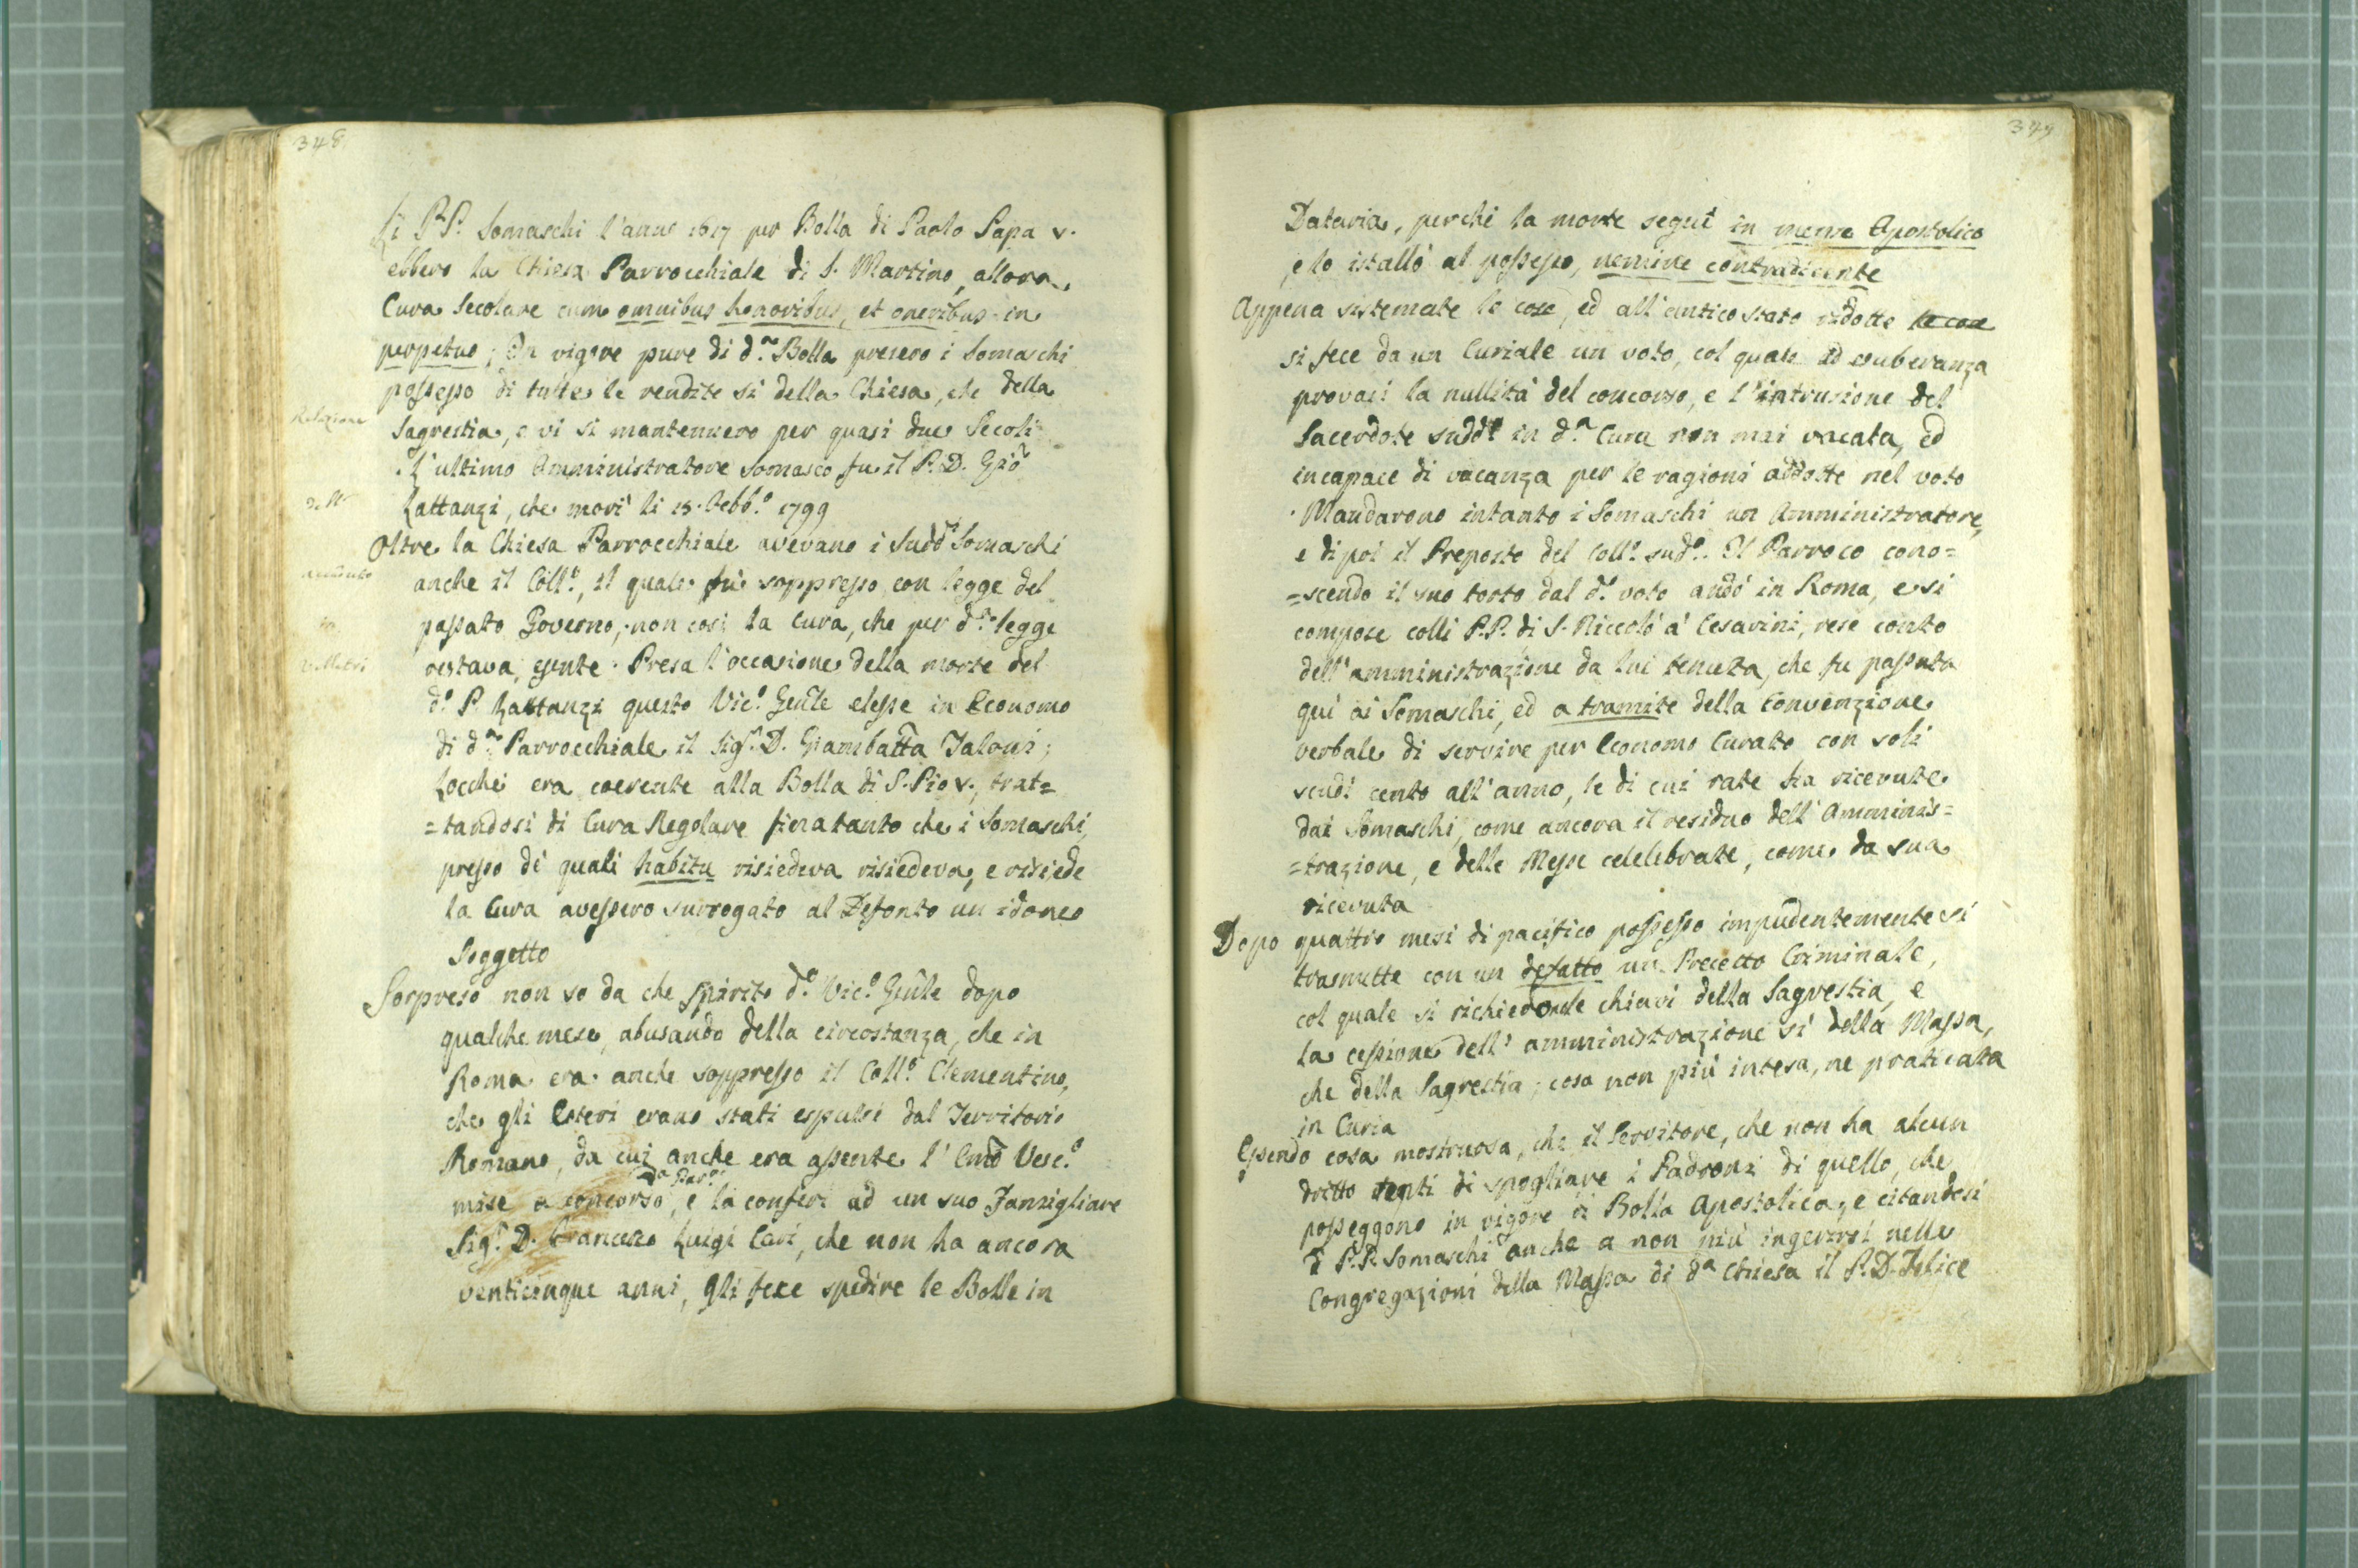 348
Li PP. Somaschi l'anno 1617 per Bolla di Paolo Papa V.
ebbero la Chiesa Parrocchiale di S. Martino, allora
Cura Secolare cum omnibus honoribus, et oneribus in
perpetuo; In vigore pure di d.ª Bolla presero i Somaschi
possesso di tutte le rendite si della Chiesa, che della
Sagrestia, e vi si mantennero per quasi due Secoli
. L'ultimo Amministratore Somasco fu il P. D. Gio
Lattanzi, che morì li 15. Febb.º 1799
Oltre la Chiesa Parrocchiale avevano i Sudd.i Somaschi
anche il Coll.º, il quale fù soppresso con legge del
passato Governo, non così la Cura, che per d.ª legge
restava esente. Presa l'occasione della morte del
d.º P. Lattanzi questo Vic.º Gen̄le elesse in Economo
di d.ª Parrocchiale il Sig.r D. Giambatt̄a Taloni;
Locchè era coerente alla Bolla di S. Pio V., trat=
=tandosi di Cura Regolare fintanto che i Somaschi,
presso de' quali habitu risiedeva risiedeva, e risiede
la Cura avessero surrogato al Defonto un idoneo
Soggetto
Sorpreso non so da che spirito d.º Vic.º Gen̄le dopo
qualche mese, abusando della circostanza, che in
Roma era anche soppresso il Coll.º Clementino,
che gli Esteri erano stati espulsi dal Territorio
Romano, da cui anche era assente l' Em̄o Vesc.º
d.ª Par.
mise a concorso, e la conferì ad un suo Famigliare
Sig.r D. Francesco Luigi Cari, che non ha ancora
venticinque anni, gli fece spedire le Bolle in
Relazione
dell'
accaduto
in
Velletri
349
Dataria, perchè la morte seguì in mense Apostolico
, e lo istallò al possesso, nemine contradicente
Appena sistemate le cose, ed all'antico stato ridotte le cose
si fece da un Curiale un voto, col quale ad exuberanza
provasi la nullità del concorso, e l'intrusione del
Sacerdote sudd.º in d.ª Cura non mai vacata, ed
incapace di vacanza per le ragioni addotte nel voto
. Mandarono intanto i Somaschi un Amministratore,
e di poi il Preposto del Coll.º sud.º. Il Parroco cono=
=scendo il suo torto dal d.º voto andò in Roma, e si
compose colli P.P. di S. Niccolò a' Cesarini, rese conto
dell'amministrazione da lui tenuta, che fu passata
quì ai Somaschi, ed a tramite della Convenzione
verbale di servire per Economo Curato con soli
scudi cento all'anno, le di cui rate ha ricevute
dai Somaschi, come ancora il residuo dell'Amminis=
=trazione, e delle Messe celelebrate, come da sua
ricevuta
Dopo quattro mesi di pacifico possesso impudentemente si
trasmette con un defatto un Precetto Criminale,
col quale si richiedono le chiavi della Sagrestia, e
la cessione dell' amministrazione sì della Massa,
che della Sagrestia; cosa non più intesa, ne praticata
in Curia
Essendo cosa mostruosa, che il Servitore, che non ha alcun
dritto tenti di spogliare i Padroni di quello, che
posseggono in vigore di Bolla Apostolica, e citandosi
i P.P. Somaschi anche a non più ingerirsi nelle
Congregazioni della Massa di d.ª Chiesa il P. D. Felice